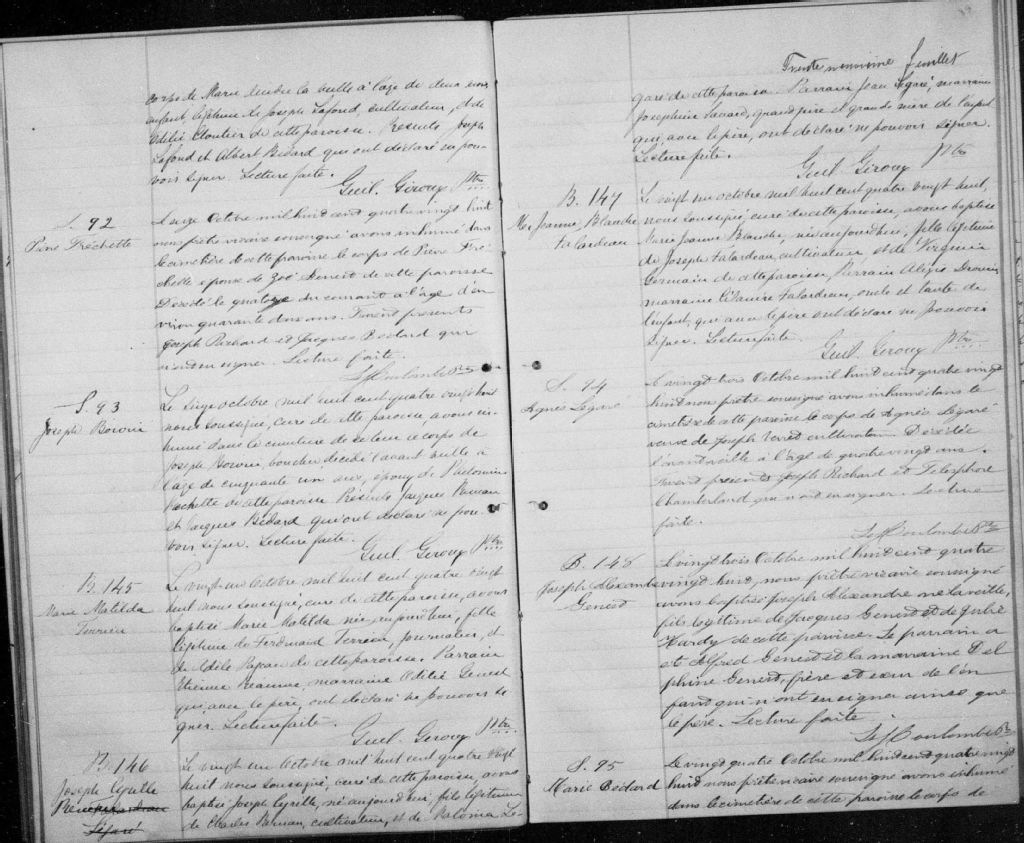 corps de Marie le la veille à l'âge de deux mois
enfant légitime de Joseph Lafond, cultivateur, et de
Odélie Cloutier de cette paroisse. Présents Joseph
Lafond et Albert Bédard qui ont déclaré ne pou-
voir signer. Lecture faite.
Guil. Giroux Ptre
S. 92
Pierre Fréchette
Le seize Octobre mil huit cent quatre vingt huit
nous prêtre vicaire soussigné avons inhumé dans
le cimetière de cette paroisse le corps de Pierre Fré-
chette époux de Zoé Benoit de cette paroisse
Décédé le quatorze du courant à l'âge d'en
viron quarante deux ans. Furent présents
Joseph Richard et Jacques Bédard qui
n'ont su signer. Lecture faite.
S. 93
Joseph
Le seize octobre mil huit cent quatre vingt huit
nous soussigné, curé de cette paroisse, avons in-
humé dans le cimetière de ce lieu le corps de
Joseph boucher décédé l'avant veille à
l'âge de cinquante un ans, époux de
Vachette de cette paroisse Présents Jacques
et Jacques Bédard qui ont déclaré ne pou-
voir signer. Lecture faite.
Guil. Giroux Ptre
B. 145
Marie Matilda
Terrien
Le vingt un Octobre mil huit cent quatre vingt
huit nous soussigné, curé de cette paroisse, avons
baptisé Marie Matilda née aujourd'hui, fille
légitime de Ferdinand Terrien, journalier, et
de Adèle de cette paroisse. Parrain
Etienne marraine Odélie Genest
qui, avec le père, ont déclaré ne pouvoir si-
gner. Lecture faite.
Guil. Giroux Ptre
B. 146
Joseph Cyrille
Le vingt un Octobre mil huit cent quatre vingt
huit nous soussigné, curé de cette paroisse, avons
baptisé Joseph Cyrille, né aujourd'hui, fils légitime
de Charles cultivateur, et de Philomène Lé-
Trente neuvième feuillet
garé de cette paroisse. Parrain Jean Légaré, marraine
Josephine Savard, grand père et grande mère de l'enfant
qui, avec le père, ont déclaré ne pouvoir signer.
Lecture faite.
Guil. Giroux Ptre
B. 147
Mie Jeanne Blanche
Falardeau
Le vingt un octobre mil huit cent quatre vingt huit,
nous soussigné, curé de cette paroisse, avons baptisé
Marie Jeanne Blanche, née aujourd'hui, fille légitime
de Joseph Falardeau, cultivateur et de Virginie
Germain de cette paroisse, Parrain Alexis Drouin,
marraine Falardeau, oncle et tante de
l'enfant, qui avec le père ont déclaré ne pouvoir
signer. Lecture faite.
Guil. Giroux Ptre
S. 94
Agnès Légaré
Le vingt trois Octobre mil huit cent quatre vingt
huit nous prêtre soussigné avons inhumé dans le
cimetière de cette paroisse le corps de Agnès Légaré
veuve de Joseph Verret cultivateur Décédée
l'avant veille à l'âge de quatre vingt ans.
Furent présents Joseph Richard et Télesphore
Chamberland qui n'ont su signer. Lecture
faite.
B. 148
Joseph Alexandre
Genest
Le vingt trois Octobre mil huit cent quatre
vingt huit, nous prêtre vicaire soussigné
avons baptisé Joseph Alexandre né la veille,
fils légitime de Jacques Genest et de Julie
Hardy de cette paroisse. Le parrain a
été Alfred Genest et la marraine Del
phine Genest, frère et soeur de l'en
fant qui n'ont su signer ainsi que
le père. Lecture faite
S. 95
Marie Bédard
Le vingt quatre Octobre mil huit cent quatre vingt
huit nous prêtre vicaire soussigné avons inhumé
dans le cimetière de cette paroisse le corps de